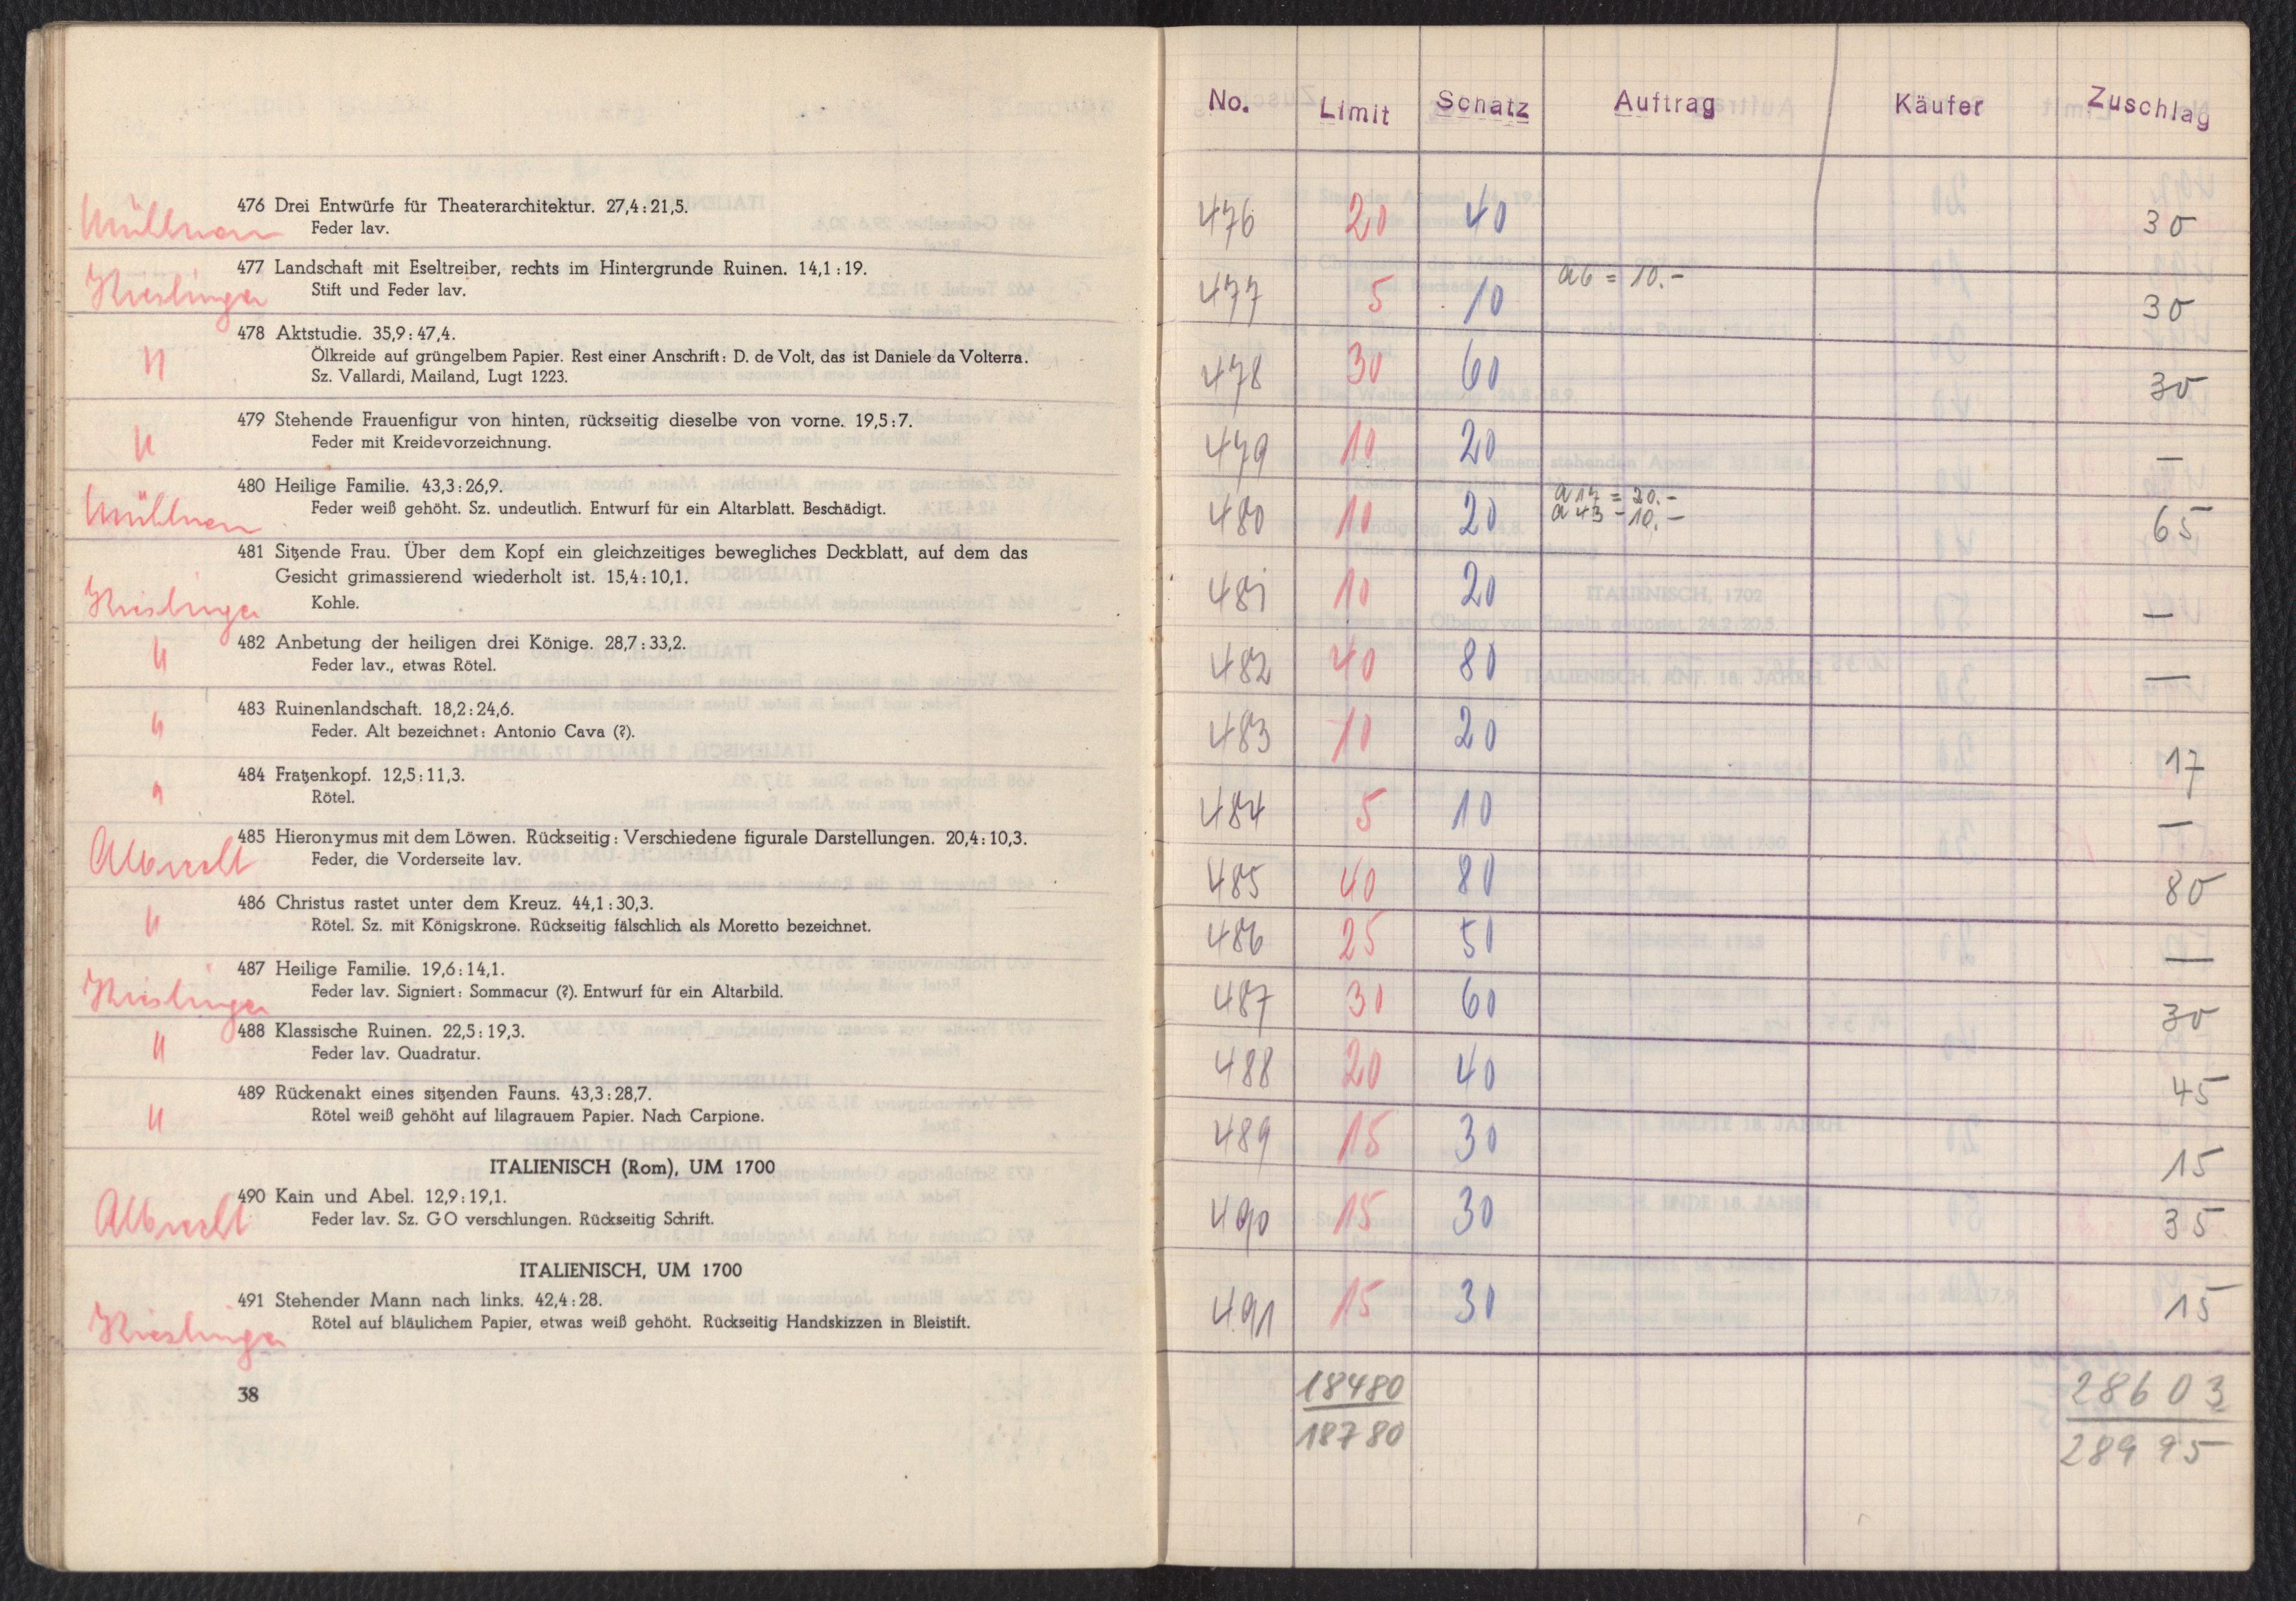 476 Drei Entwürfe für Theaterarchitektur. 27,4 : 21,5.
Feder lav.
477 Landschaft mit Eseltreiber, rechts im Hintergrunde Ruinen. 14,1 : 19.
Kieslinger
Stift und Feder lav.
478 Aktstudie. 35,9 : 47,4.
Ölkreide auf grüngelbem Papier. Rest einer Anschrift: D. de Volt, das ist Daniele da Volterra.
"
Sz. Vallardi, Mailand, Lugt 1223.
479 Stehende Frauenfigur von hinten, rückseitig dieselbe von vorne. 19,5 : 7.
"
Feder mit Kreidevorzeichnung.
480 Heilige Familie. 43,3 : 26,9.
Feder weiß gehöht. Sz. undeutlich. Entwurf für ein Altarblatt. Beschädigt.
481 Sitzende Frau. Über dem Kopf ein gleichzeitiges bewegliches Deckblatt, auf dem das
Gesicht grimassierend wiederholt ist. 15,4 : 10,1.
Kieslinger
Kohle.
482 Anbetung der heiligen drei Könige. 28,7 : 33,2.
"
Feder lav., etwas Rötel.
483 Ruinenlandschaft. 18,2 : 24,6.
"
Feder. Alt bezeichnet: Antonio Cava (?).
484 Fratzenkopf. 12,5 : 11,3.
"
Rötel.
485 Hieronymus mit dem Löwen. Rückseitig: Verschiedene figurale Darstellungen. 20,4 : 10,3.
Albrecht
Feder, die Vorderseite lav.
486 Christus rastet unter dem Kreuz. 44,1 : 30,3.
"
Rötel. Sz. mit Königskrone. Rückseitig fälschlich als Moretto bezeichnet.
487 Heilige Familie. 19,6 : 14,1.
Kieslinger
Feder lav. Signiert: Sommacur (?). Entwurf für ein Altarbild.
488 Klassische Ruinen. 22,5 : 19,3.
"
Feder lav. Quadratur.
489 Rückenakt eines sitzenden Fauns. 43,3 : 28,7.
"
Rötel weiß gehöht auf lilagrauem Papier. Nach Carpione.
ITALIENISCH (Rom), UM 1700
490 Kain und Abel. 12,9 : 19,1.
Albrecht
Feder lav. Sz. GO verschlungen. Rückseitig Schrift.
ITALIENISCH, UM 1700
491 Stehender Mann nach links. 42,4 : 28.
Kieslinger
Rötel auf bläulichem Papier, etwas weiß gehöht. Rückseitig Handskizzen in Bleistift.
38
No. Limit Schatz Auftrag Käufer Zuschlag
476 20 40 30
477 5 10 a 6 = 10.- 30
478 30 60 30
479 10 20 —
480 10 20 a 17 = 20.- 65
a 43 - 10.-
481 10 20 —
482 40 80 —
483 10 20 17
484 5 10 —
485 40 80 80
486 25 50 —
487 30 60 30
488 20 40 45
489 15 30 15
490 15 30 35
491 15 30 15
18480 28603
18780 28995